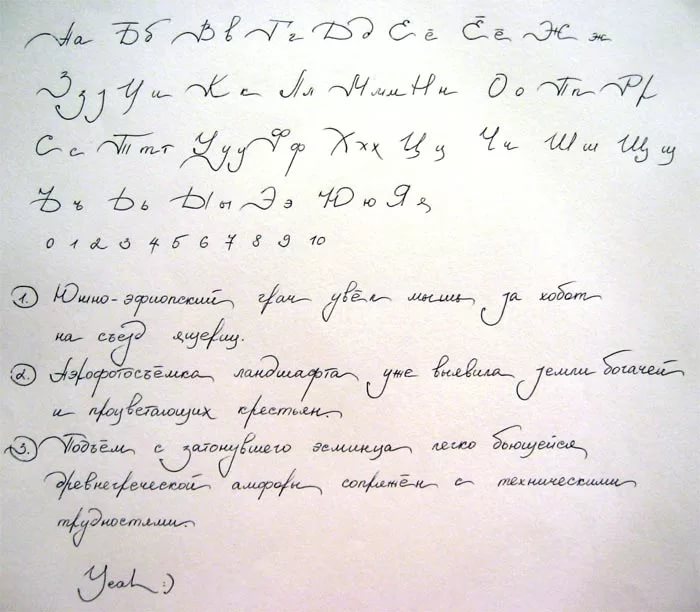 Аа Бб Вв Гг Дд Ее Ёё Жж
Зз з Ии Кк Лл Мм Нн Оо Пп Рр
Сс Ттт Ууу Фф Ххх Цц Чч Шш Щщ
Ъъ Ьь Ыы Ээ Юю Яя
0 1 2 3 4 5 6 7 8 9 10
1. Южно-эфиопский грач увёл мышь за хобот
на съезд ящериц.
2. Аэрофотосъёмка ландшафта уже выявила земли богачей
и процветающих крестьян.
3. Подъём с затонувшего эсминца легко бьющейся
древнегреческой амфоры сопряжён с техническими
трудностями.
Yeah :)